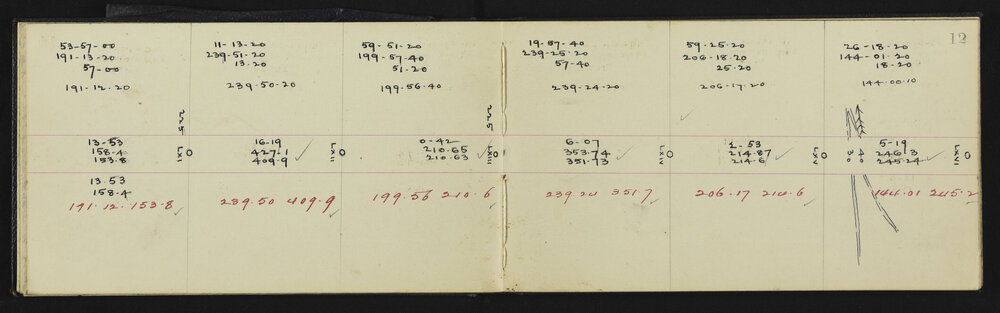 12
53-57-00
191-13-20
57-00
191-12-20
11-13-20
239-51-20
13-20
239-50-20
59-51-20
199-57-40
51-20
199-56-40
19-57-40
239-25-20
57-40
239-24-20
59-25-20
206-18-20
25-20
206-17-20
26-18-20
144-01-20
18-20
144-00-10
13-53
158-4
153-8
LXI
16-19
427-1
409-9
LXII
0-42
210-65
210-63
LXIII
6-07
353-74
351-73
LXIV
1-53
214-87
214-6
LXV
5-19
246-3
245-24
LXVI
13 53
158-4
191·12· 153·8
239·50 409·9
199·56 210·6
239·24 351·7
206·17 214·6
144·01 245·2